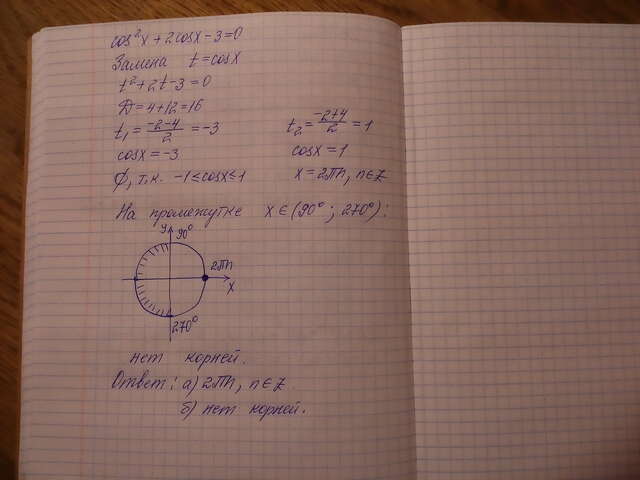 cos²x + 2cosx - 3 = 0
Замена t = cosx
t² + 2t - 3 = 0
Д = 4 + 12 = 16
t₁ = (-2-4)/2 = -3 t₂ = (-2+4)/2 = 1
cosx = -3 cosx = 1
∅, т.к. -1 ≤ cosx ≤ 1 x = 2πn, n ∈ Z
На промежутке x ∈ (90°; 270°):
y 90°
2πn
x
270°
нет корней.
Ответ: а) 2πn, n ∈ Z.
б) нет корней.